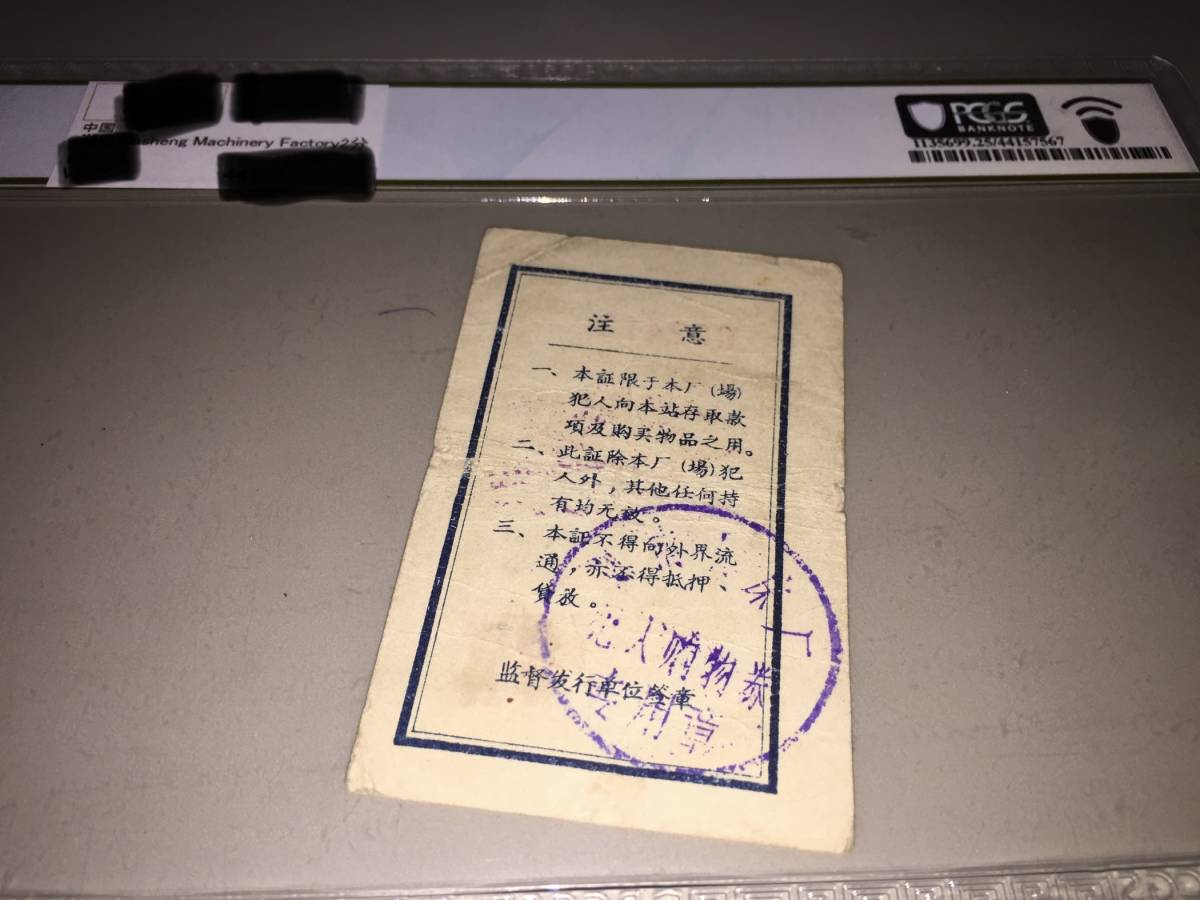 中国
sheng Machinery Factory2分
PCGS
BANKNOTE
1135699.25/44157567
注 意
一、本証限于本厂（場）
犯人向本站存取款
項及购买物品之用。
二、此証除本厂（場）犯
人外，其他任何持
有均无效。
三、本証不得向外界流
通，亦不得抵押、
貸放。
监督发行单位簽章
厂
犯人购物券
专用章